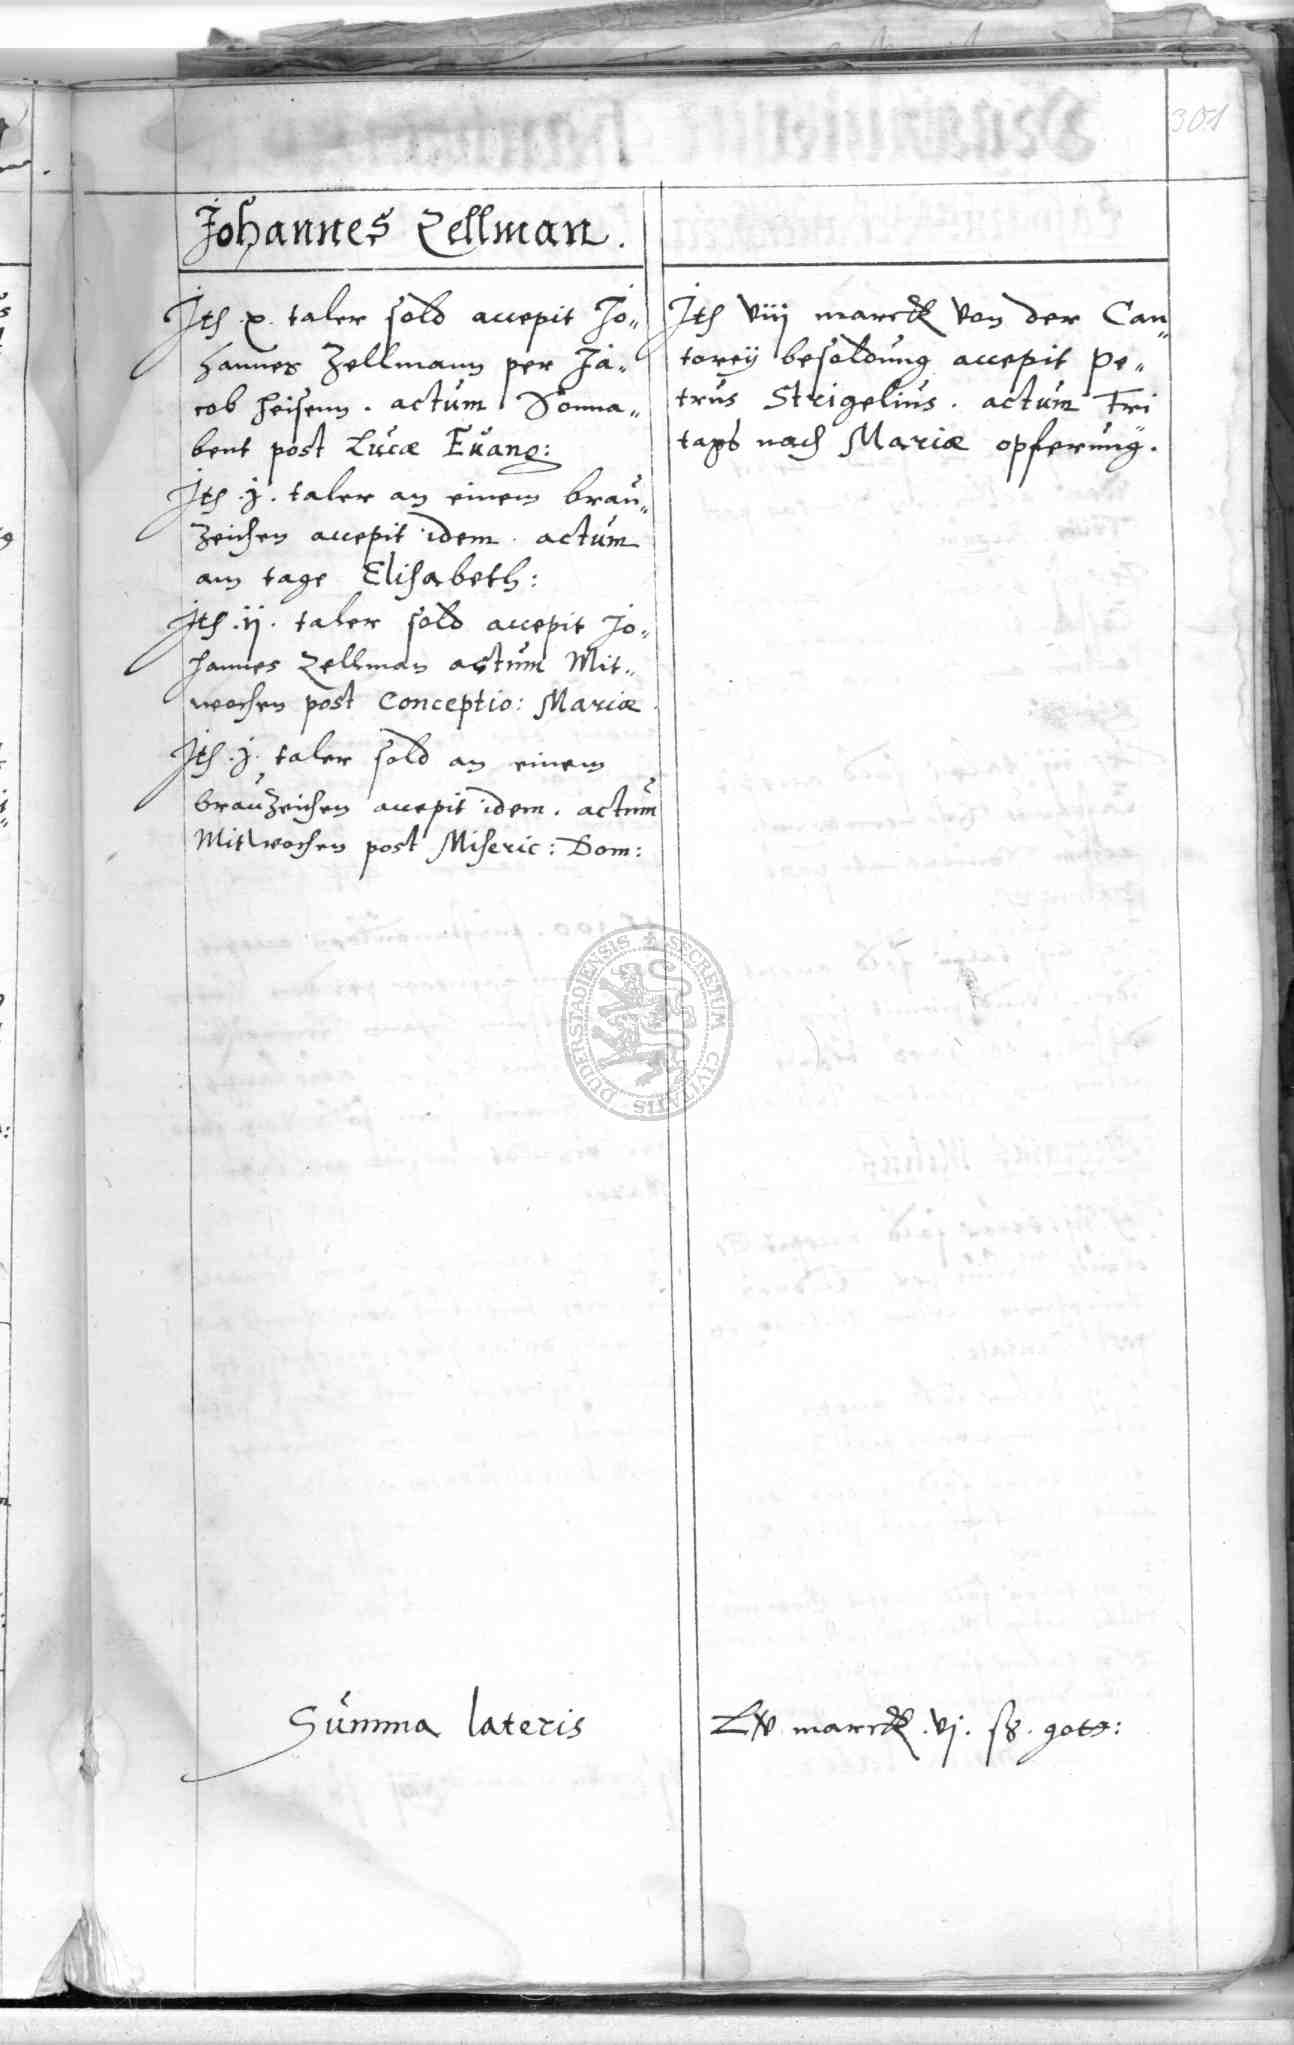 301
Johannes Zellman.
Jth .x. taler sold accepit Jo„
hannes Zellmann per Ja„
cob Heisenn . actum Sonna„
bent post Lucæ Euang:
Jth .j. taler an einem brau„
zeichen accepit idem . actum
am tage Elisabeth:
Jth .ij. taler sold accepit Jo„
hannes Zellman actum Mit„
wochen post Conceptio: Mariæ
Jth .j. taler sold an einem
brauzeichen accepit idem . actum
Mitwochen post Miseric: Dom:
Jth viij marck von der Can„
toreÿ besoldung accepit Pe„
trus Strigelius . actum Fri
tags nach Mariæ opferung.
Summa lateris
Lxv marck .vj. ß. gott:
DUDERSTADIENSIS SECRETUM CIVITATIS